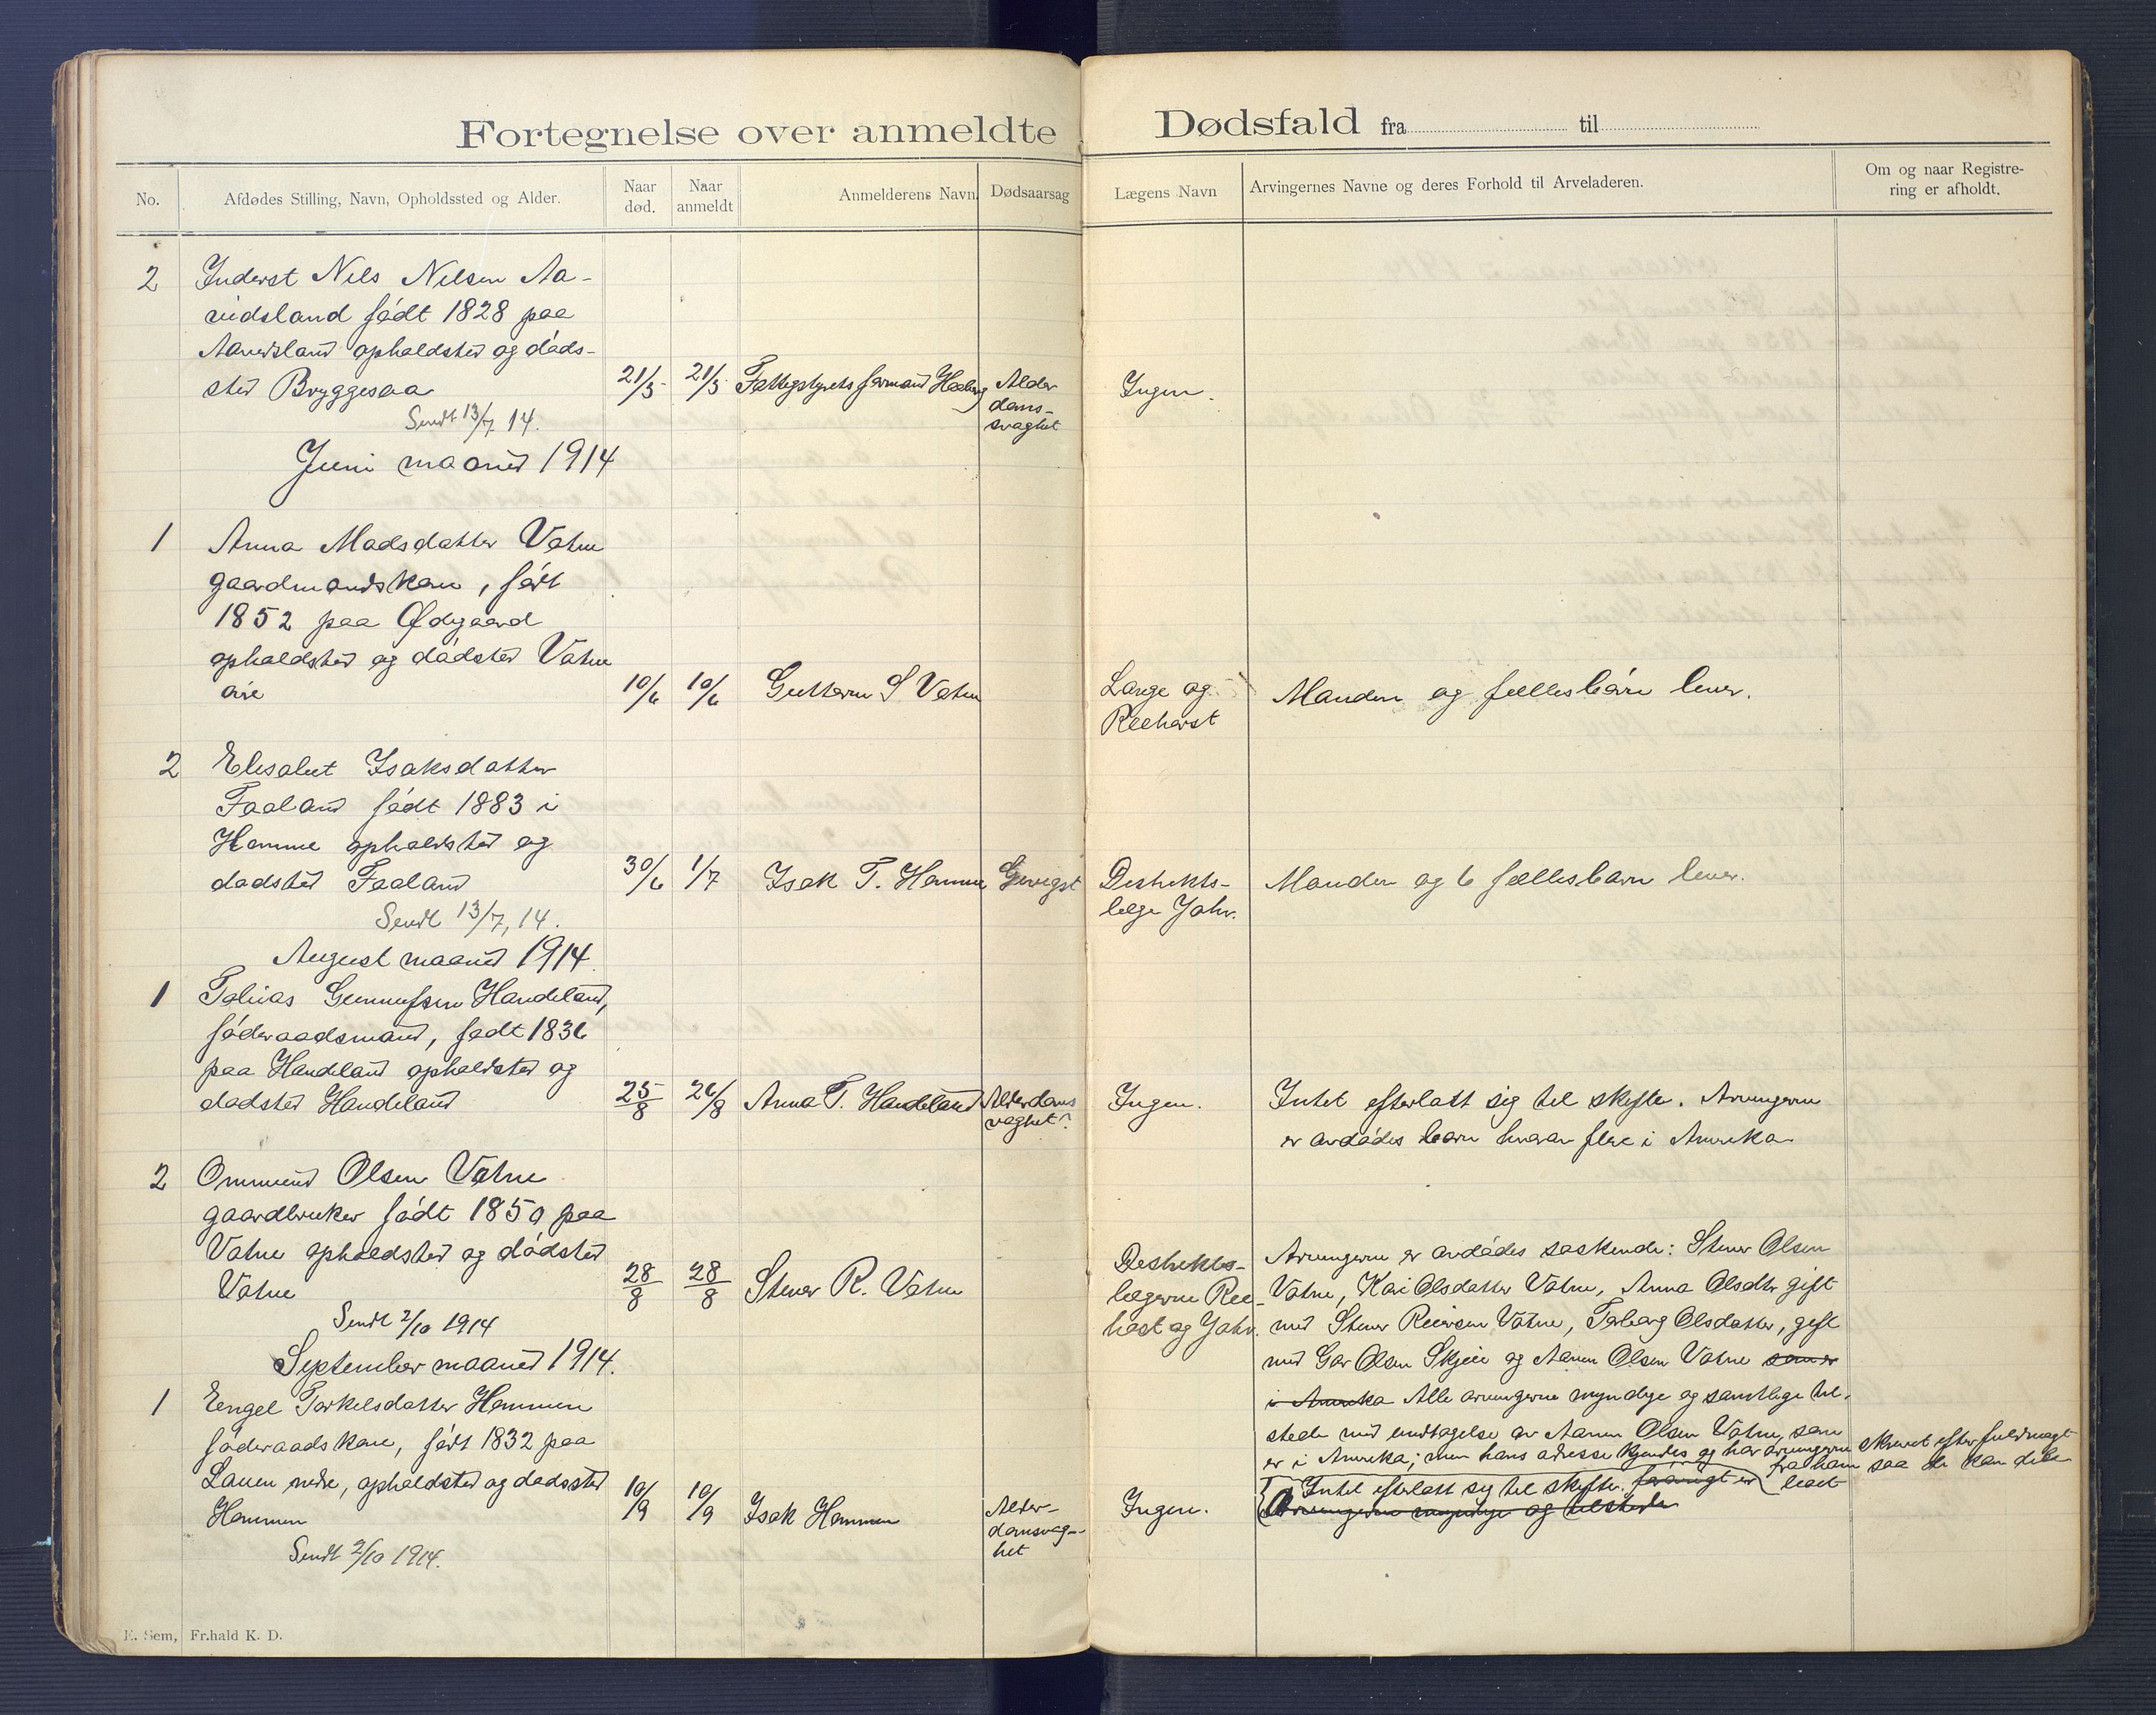 Fortegnelse over anmeldte Dødsfald fra til
No.
Afdødes Stilling, Navn, Opholdssted og Alder.
Naar død.
Naar anmeldt
Anmelderens Navn
Dødsaarsag
Lægens Navn
Arvingernes Navne og deres Forhold til Arveladeren.
Om og naar Registre-
ring er afholdt.
2 Inderst Nils Nilsen Aa-
nidsland födt 1828 paa
Aanidsland opholdsted og döds-
sted Bryggesaa 21/5 21/5 Fattigstyrets formand Alder
doms-
svaghet
Ingen.
Sendt 13/7 14.
Juni maaned 1914
1 Anna Madsdatter Vatne
gaardmandskone, födt
1852 paa Ødegaard
opholdsted og dödsted Vatne
10/6 10/6 Guttorm S Vatne
Lange og
Reehorst
Manden og fellesbörn lever.
2 Elisabet Isaksdatter
Faaland födt 1883 i
Homme opholdsted og
dodsted Faaland 30/6 1/7 Isak T. Homme
Destrikts-
lege Jahr.
Manden og 6 fellesbarn lever.
Sendt 13/7, 14.
August maaned 1914
1 Tobias Gunnufsen Handeland,
föderaadsmand, födt 1836
paa Handeland opholdsted og
dodsted Handeland 25/8 26/8 Anna T. Handeland Alderdoms
svaghet
Ingen.
Intet efterlatt sig til skifte. Arvingerne
er avdödes barn hvorav flere i Amerika
2 Ommund Olsen Vatne
gaardbruker födt 1850 paa
Vatne opholdsted og dödsted
Vatne 28/8 28/8 Stener R. Vatne
Destrikts-
legerne Ree-
host og Jahr.
Arvingerne er avdödes söskende: Stener Olsen
Vatne, Kari Olsdatter Vatne, Anna Olsdtr gift
med Stener Reiersen Vatne, Torborg Olsdatter, gift
med Olsen Skjeie og Aanen Olsen Vatne som er
i Amerika Alle arvingerne myndige og samtlige til-
stede med undtagelse av Aanen Olsen Vatne, som
er i Amerika; men hans adresse kjendes og har arvingerne skrevet efter fuldmagt
fra ham saa de kan dele
boet
Sendt 2/10 1914
September maaned 1914.
1 Engel Torkelsdatter Hommen
föderaadskone, födt 1832 paa
Lauen nedre, opholdsted og dodssted
Hommen 10/9 10/9 Isak Hommen Alder-
domsvag-
het
Ingen.
Intet efterlatt sig til skifte. forövrigt er
Arvingerne myndige og tilstede
Sendt 2/10 1914.
E. Sem, Fr.hald K. D.